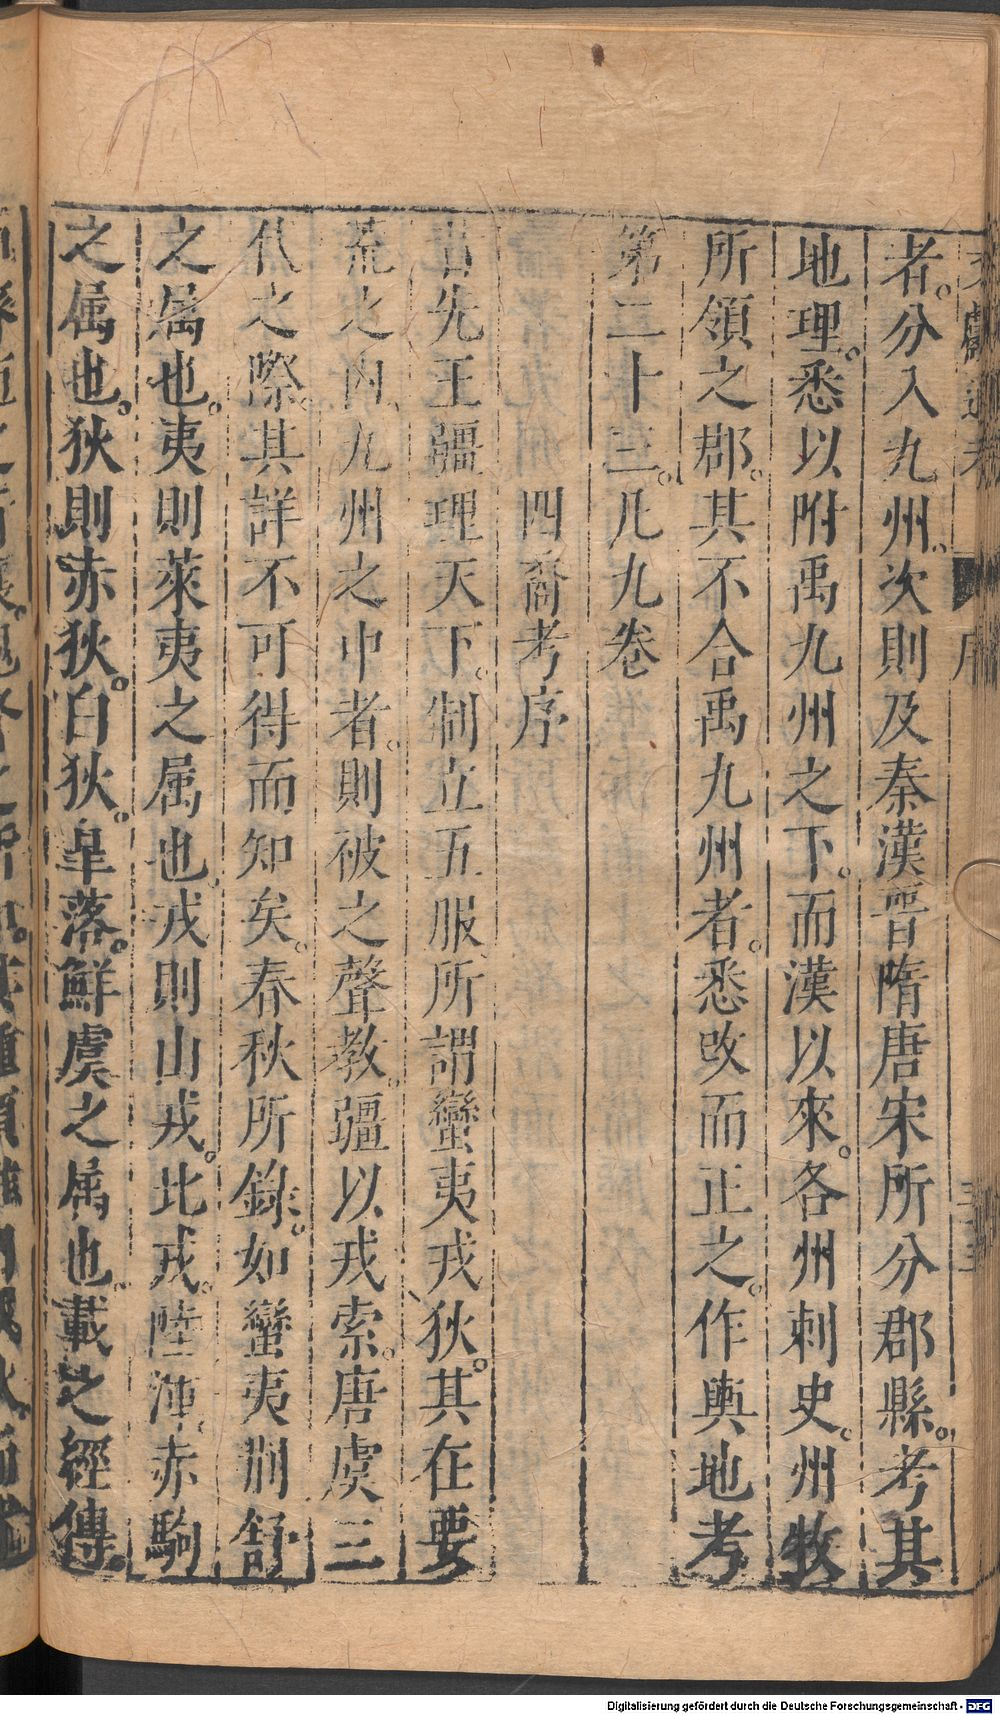 者。分入九州。次則及秦漢晉隋唐宋所分郡縣。考其
地理。悉以附禹九州之下。而漢以來。各州刺史。州牧
所領之郡。其不合禹九州者。悉改而正之。作輿地考
第二十三。凡九卷
四裔考序
昔先王疆理天下。制立五服所謂蠻夷戎狄。其在要
荒之內。九州之中者。則被之聲教。疆以戎索。唐虞三
代之際。其詳不可得而知矣。春秋所錄。如蠻夷荊舒
之属也。夷則萊夷之属也。戎則山戎。北戎。陸渾。赤駒
之属也。狄則赤狄。白狄。皐落。鮮虞之属也。載之經傳。
序
Digitalisierung gefördert durch die Deutsche Forschungsgemeinschaft - DFG